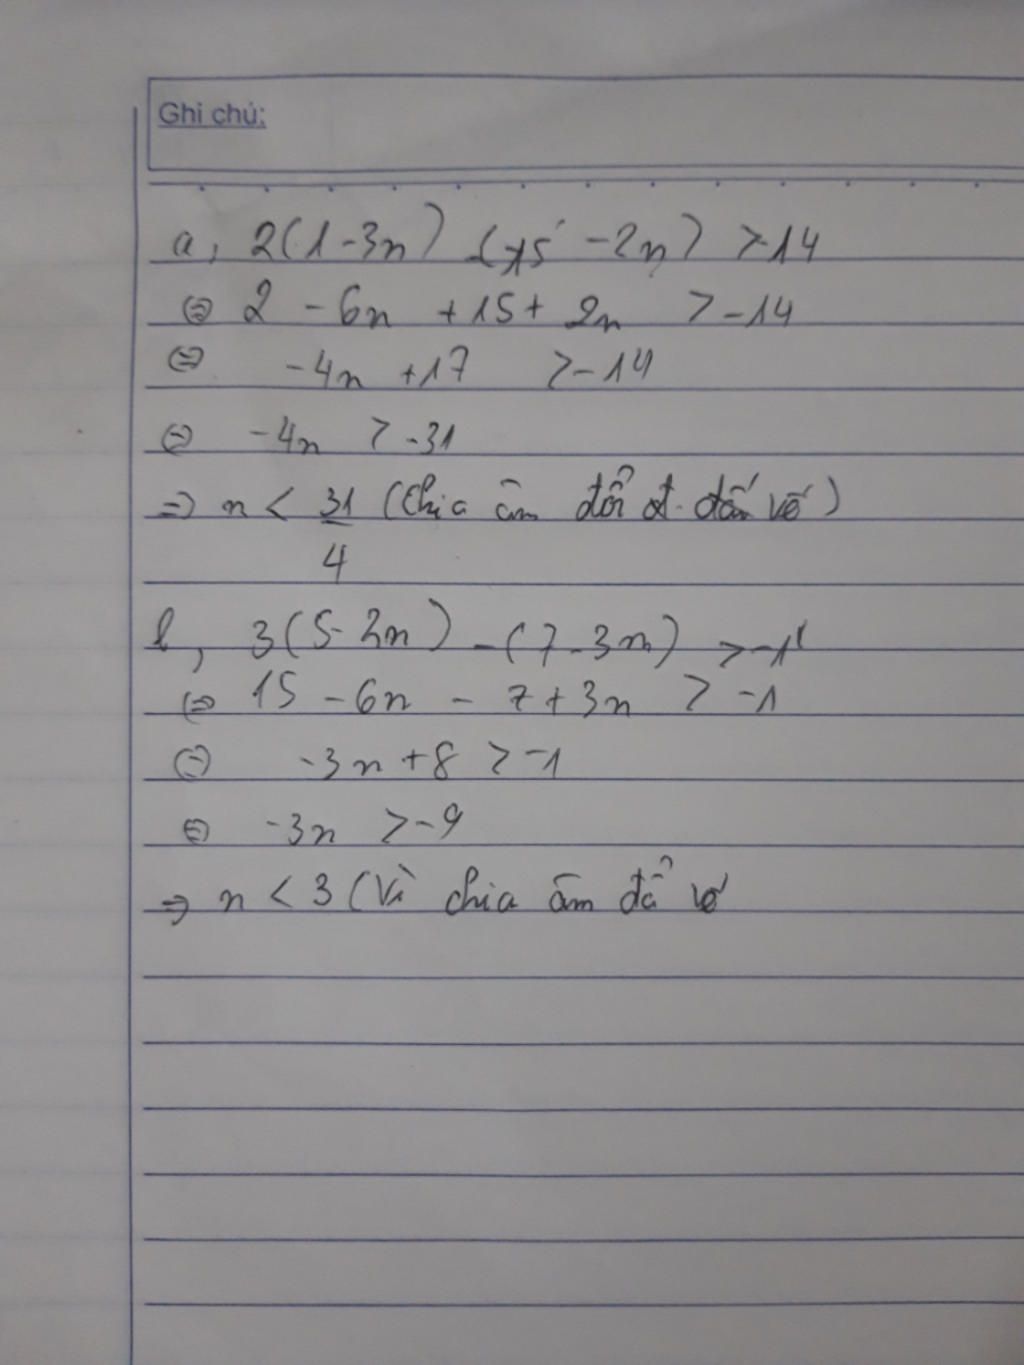 Ghi chú:
a, 2(1-3n) -(15 -2n) >-14
⇔ 2 - 6n +15+ 2n >-14
⇔ -4n +17 >-14
⇔ -4n > -31
⇒ n < 31/4 (chia âm đổi dấu vế)
b, 3(5-2n) -(7-3n) >-1
⇔ 15 - 6n - 7+3n > -1
⇔ -3n+8 >-1
⇔ -3n >-9
⇒ n < 3 (Vì chia âm đổ vế